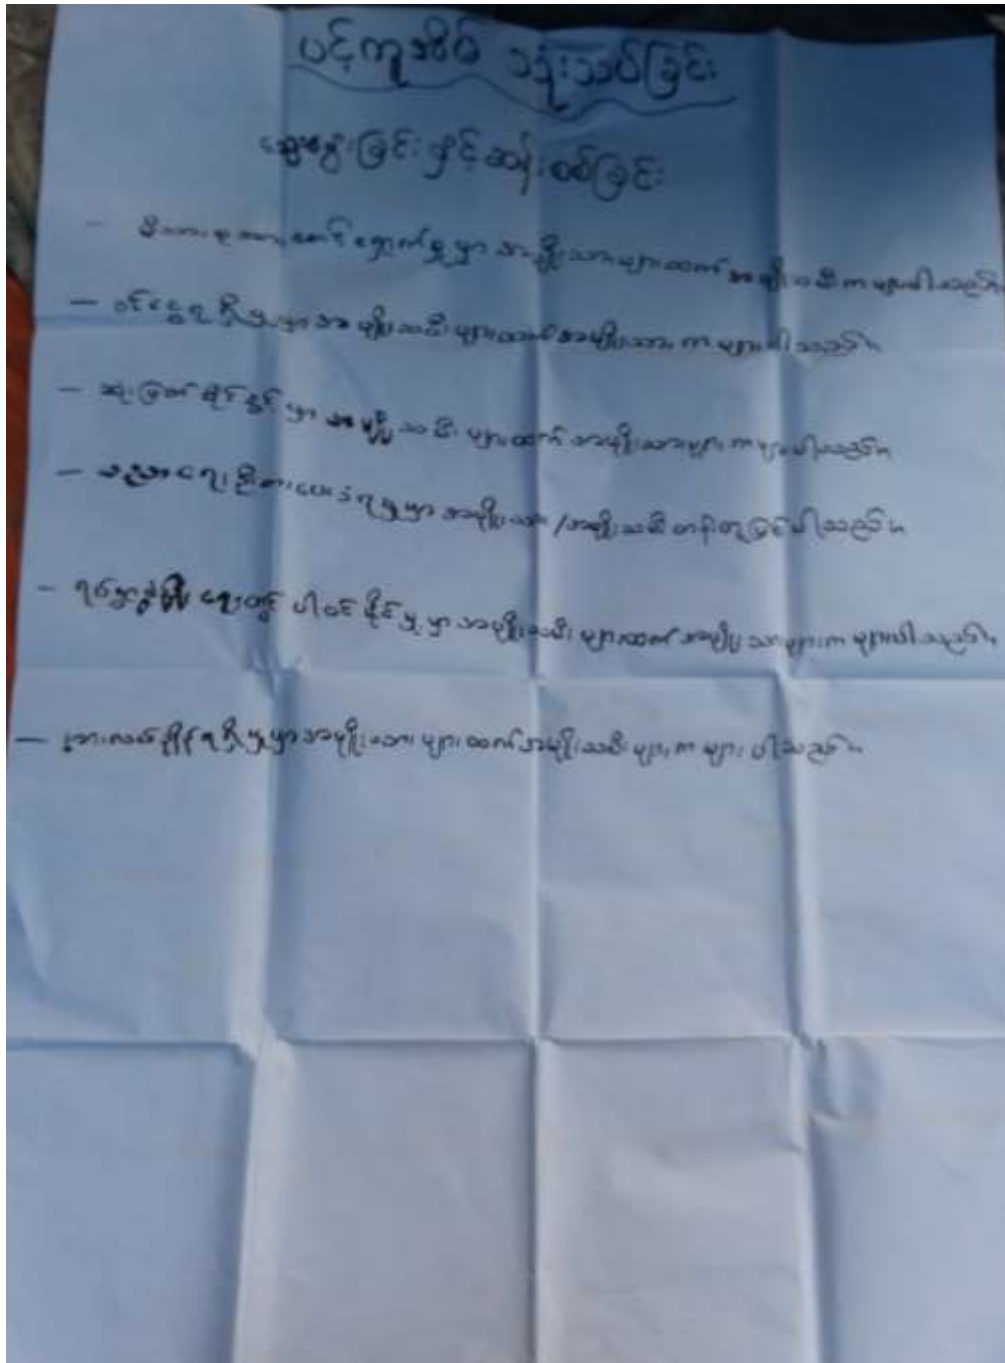 ပင့်ကူအိမ် သုံးသပ်ခြင်း
ဆွေးနွေးခြင်းနှင့်ဆန်းစစ်ခြင်း
- မိသားစုအား စောင့်ရှောက်မှုမှာ အမျိုးသားများထက် အမျိုးသမီးက များပါသည်။
- ဝင်ငွေရရှိမှုမှာ အမျိုးသမီးများထက် အမျိုးသား က များပါသည်။
- ဆုံးဖြတ်ပိုင်ခွင့်မှာ အမျိုးသမီးများထက် အမျိုးသားများကများပါသည်။
- ပညာရေး ဦးစားပေးခံရမှုမှာ အမျိုးသား/အမျိုးသမီး တန်းတူဖြစ်ပါသည်။
- ရပ်ရွာဖွံ့ဖြိုးရေးတွင် ပါဝင်နိုင်မှုမှာ အမျိုးသမီးများထက် အမျိုးသားများက များပါသည်။
- အားလပ်ချိန်ရရှိမှုမှာ အမျိုးသားများထက် အမျိုးသမီးများက များပါသည်။